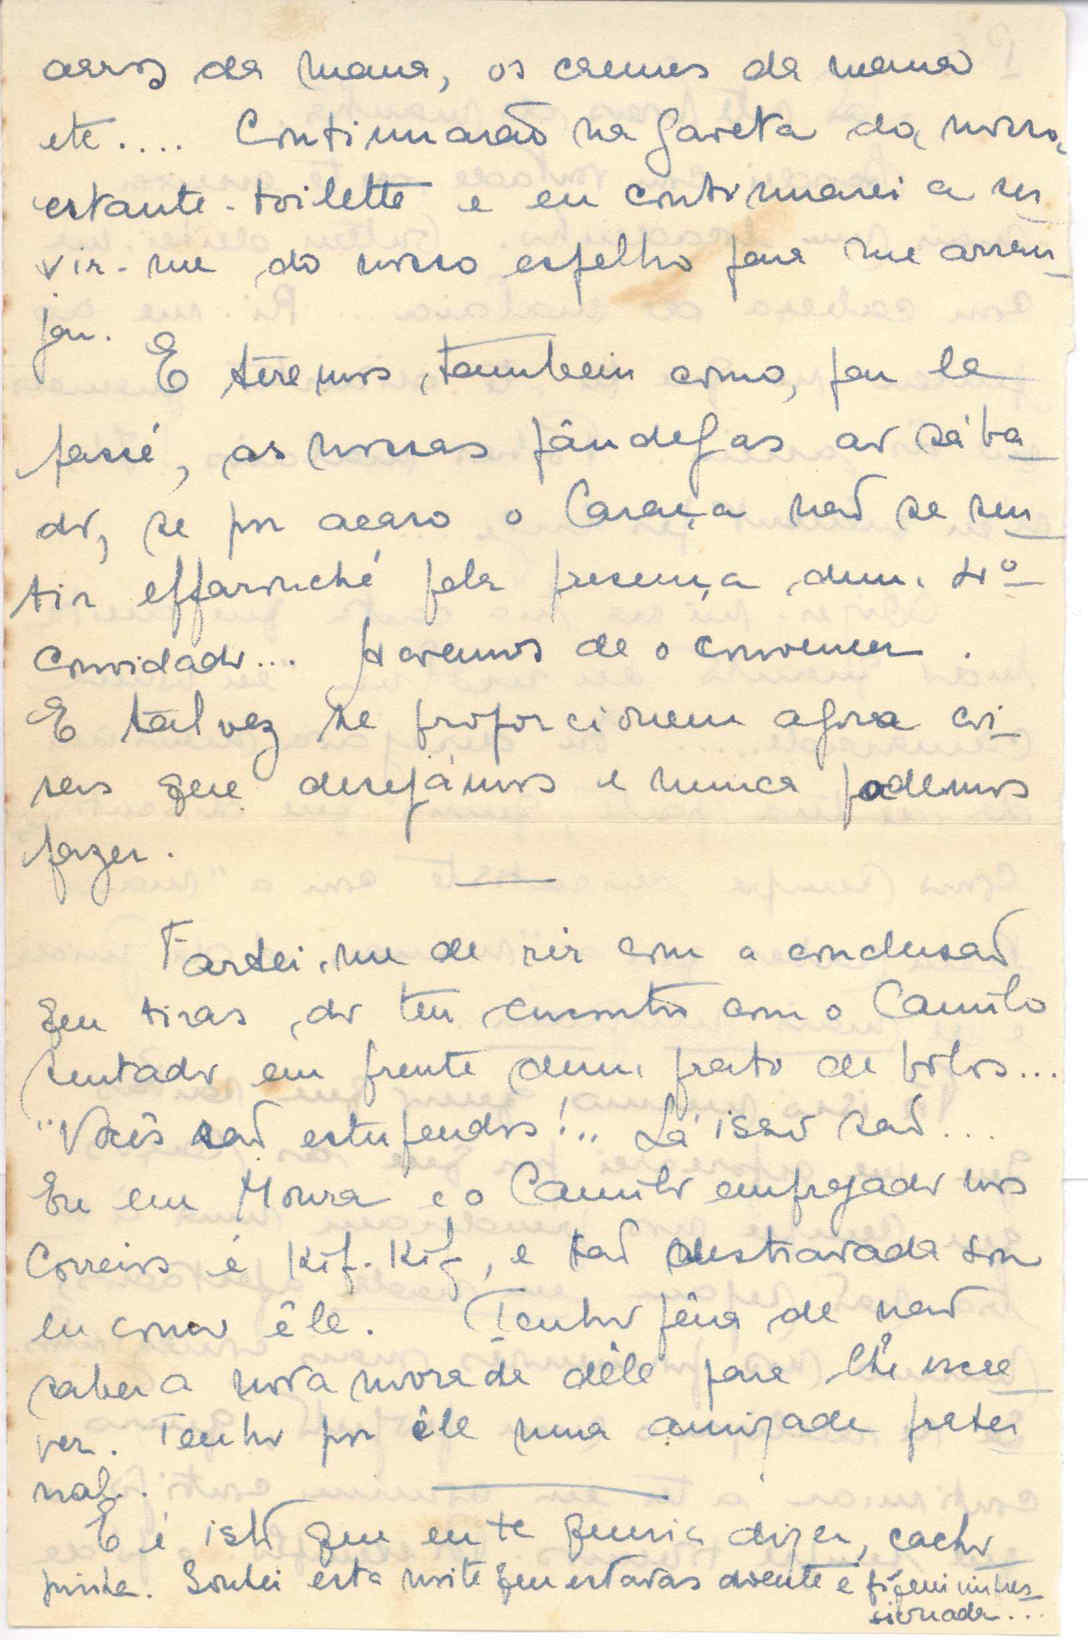 arroz da mana, os cremes da mana
etc.... Continuarão na gaveta da nossa
estante-toilette e eu continuarei a ser
vir-me do nosso espelho para me arran
jar.
E teremos, tambem como, par le
passé, as nossas pândegas ao sába
do, se por acaso o Caraça não se sen
tir effarouché pela presença dum 4º
convidado... Havemos de o convencer.
E talvez se proporcionem agora coi
sas que desejámos e nunca podemos
fazer.
Fartei-me de rir com a conclusão
que tiras do teu encontro com o Camilo
sentado em frente dum prato de bolos...
"Vocês são estupendos!" Lá isso são...
Eu em Moura e o Camilo empregado nos
Correios é Kif-Kif, e tão destravada sou
eu como êle. Tenho pena de não
saber a nova morada dêle para lhe escre
ver. Tenho por êle uma amizade frater
nal.
E é isto que eu te queria dizer, cacho
pinha. Sonhei esta noite que estavas doente e fiquei impres
sionada...